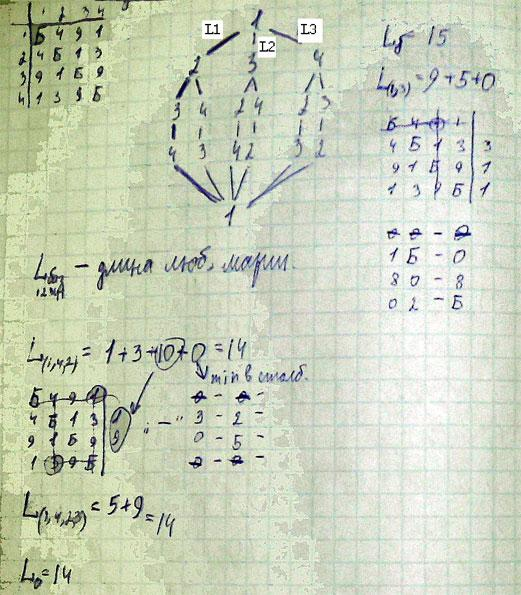 1 2 3 4
1 Б 4 9 1
2 4 Б 1 3
3 9 1 Б 9
4 1 3 9 Б
L1 1 L3
L2
2 3 4
3 4 2 4 2 3
4 3 4 2 3 2
1
= 15
L(1,3) = 9+5+0
Б 4 9 1
4 Б 1 3 3
9 1 Б 9 1
1 3 9 Б 1
0 0 - 0
1 Б - 0
8 0 - 8
0 2 - Б
- длина люб. марш.
L(1,4,2) = 1+3+10+0 = 14
min в столб.
Б 4 9 1
4 Б 1 3
9 1 Б 9
1 3 9 Б
0 - 0 -
3 - 2 -
0 - 5 -
0 - 0 -
L(1,4,2,3) = 5+9 = 14
L0 = 14